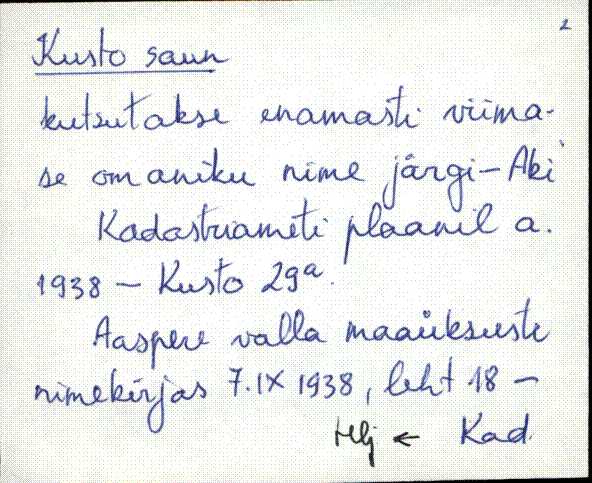 2
Kusto saun
kutsutakse enamasti viima-
se omaniku nime järgi – Aki
Kadastriameti plaanil a.
1938 – Kusto 29a.
Aaspere valla maaüksuste
nimekirjas 7.IX 1938, leht 18 –
Hlj ← Kad.